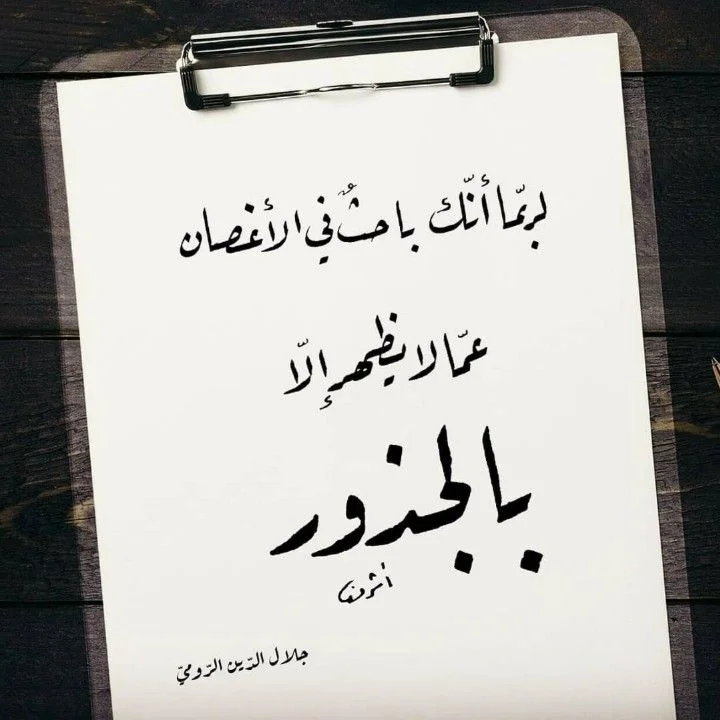 لربّما أنّك باحثٌ في الأغصان
عمّا لا يظهر إلّا
بالجذور
جلال الدّين الرّوميّ